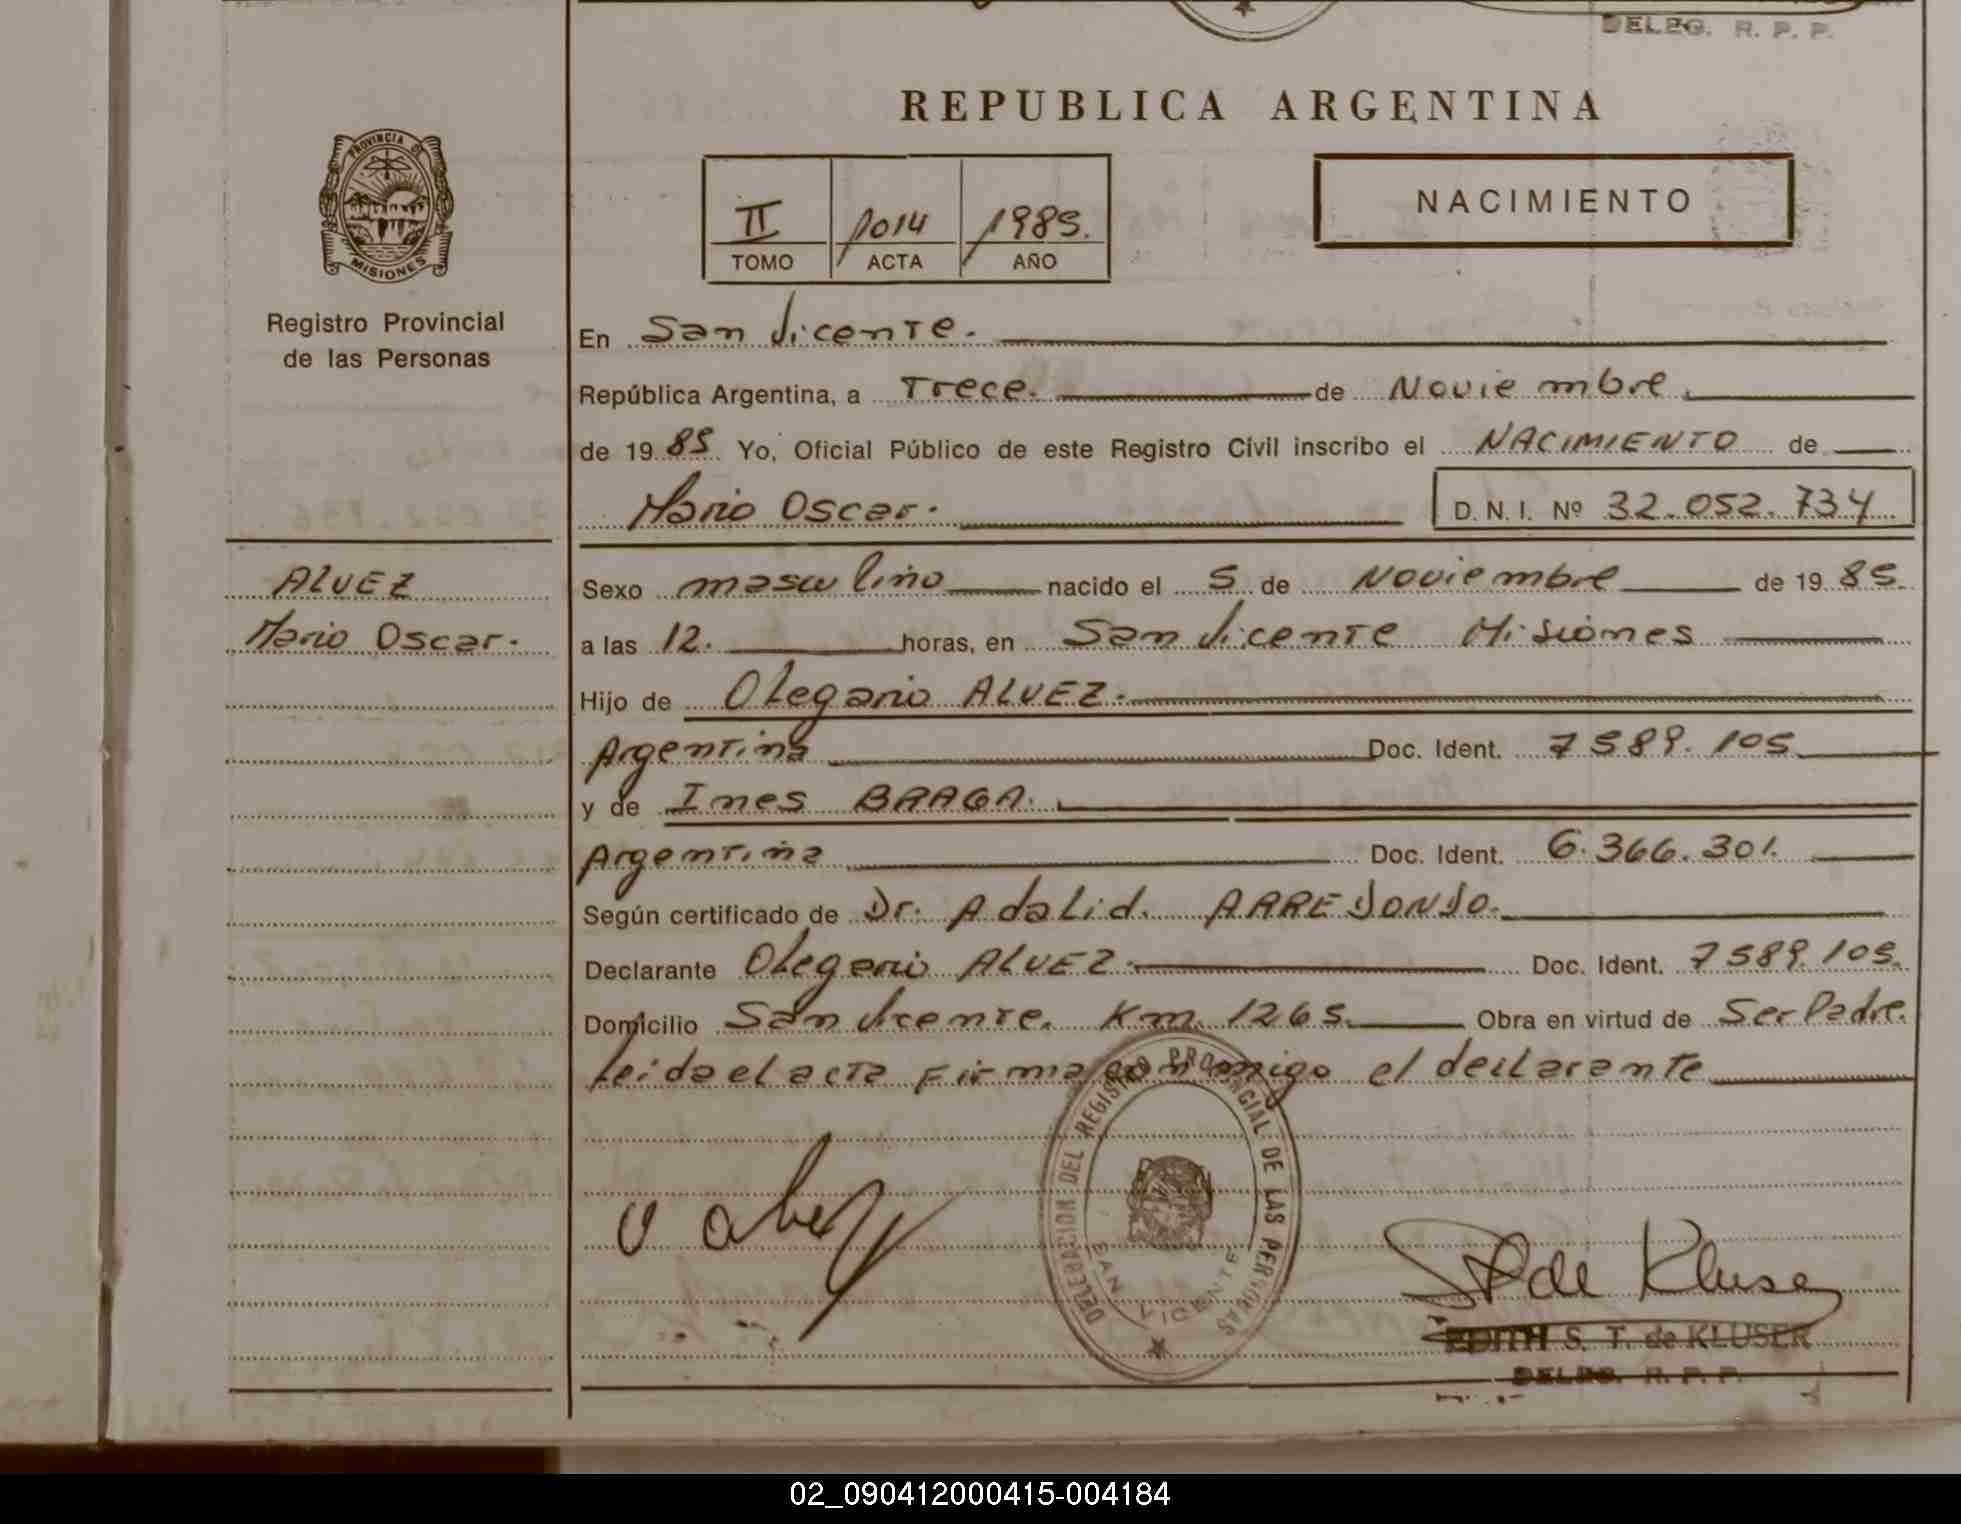 DELEG. R. P. P.
REPUBLICA ARGENTINA
PROVINCIA DE
MISIONES
Registro Provincial
de las Personas
II 1014 1985.
TOMO ACTA AÑO
NACIMIENTO
En San Vicente.
República Argentina, a Trece. de Noviembre.
de 19 85 Yo, Oficial Público de este Registro Civil inscribo el NACIMIENTO de
Mario Oscar. D. N. I. Nº 32.052.734
ALVEZ
Mario Oscar.
Sexo masculino nacido el 5 de Noviembre de 19 85
a las 12. horas, en San Vicente Misiones
Hijo de Olegario ALVEZ.
Argentina Doc. Ident. 7589.105
y de Ines BRAGA.
Argentina Doc. Ident. 6.366.301.
Según certificado de Dr. Adalid. ARREDONDO.
Declarante Olegario ALVEZ. Doc. Ident. 7589.105.
Domicilio San Vicente. Km. 1265. Obra en virtud de Ser Padre.
Leida el acta Firma conmigo el declarante
DELEGACION DEL REGISTRO PROVINCIAL DE LAS PERSONAS
SAN VICENTE
de Kluser
EDITH S. T. de KLUSER
DELEG. R. P. P.
02_090412000415-004184